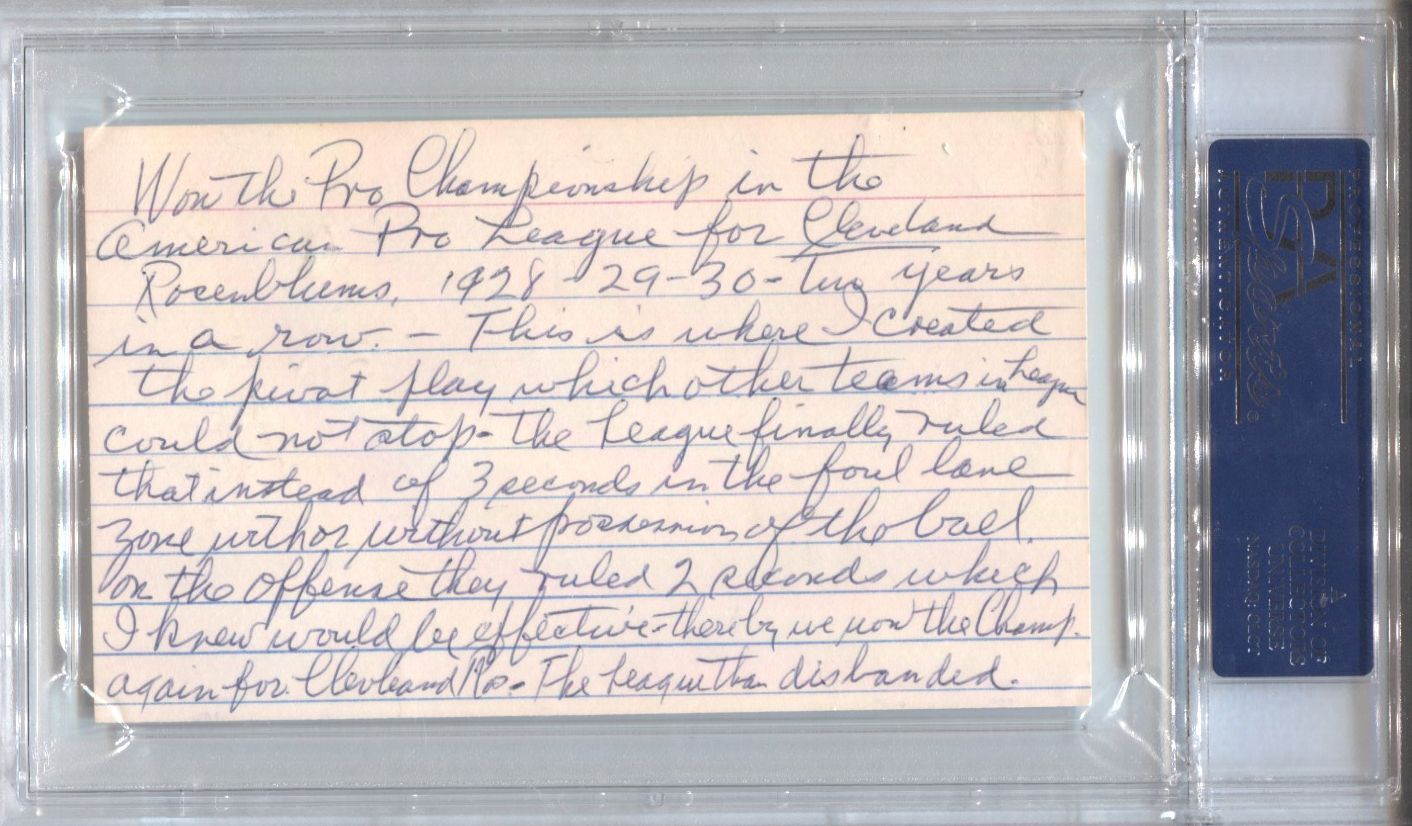 Won the Pro Championship in the
American Pro League for Cleveland
Rosenblums, 1928-29-30-Two years
in a row. - This is where I created
the pivot play which other teams in League
could not stop- The League finally ruled
that instead of 3 seconds in the foul lane
zone with or without possession of the ball.
on the offense they ruled 2 seconds which
I knew would be effective-thereby we won the Champ.
again for Cleveland Ros- The League than disbanded.
PROFESSIONAL
PSA
AUTHENTICATOR
A
DIVISION OF
COLLECTORS
UNIVERSE
NASDAQ: CLCT